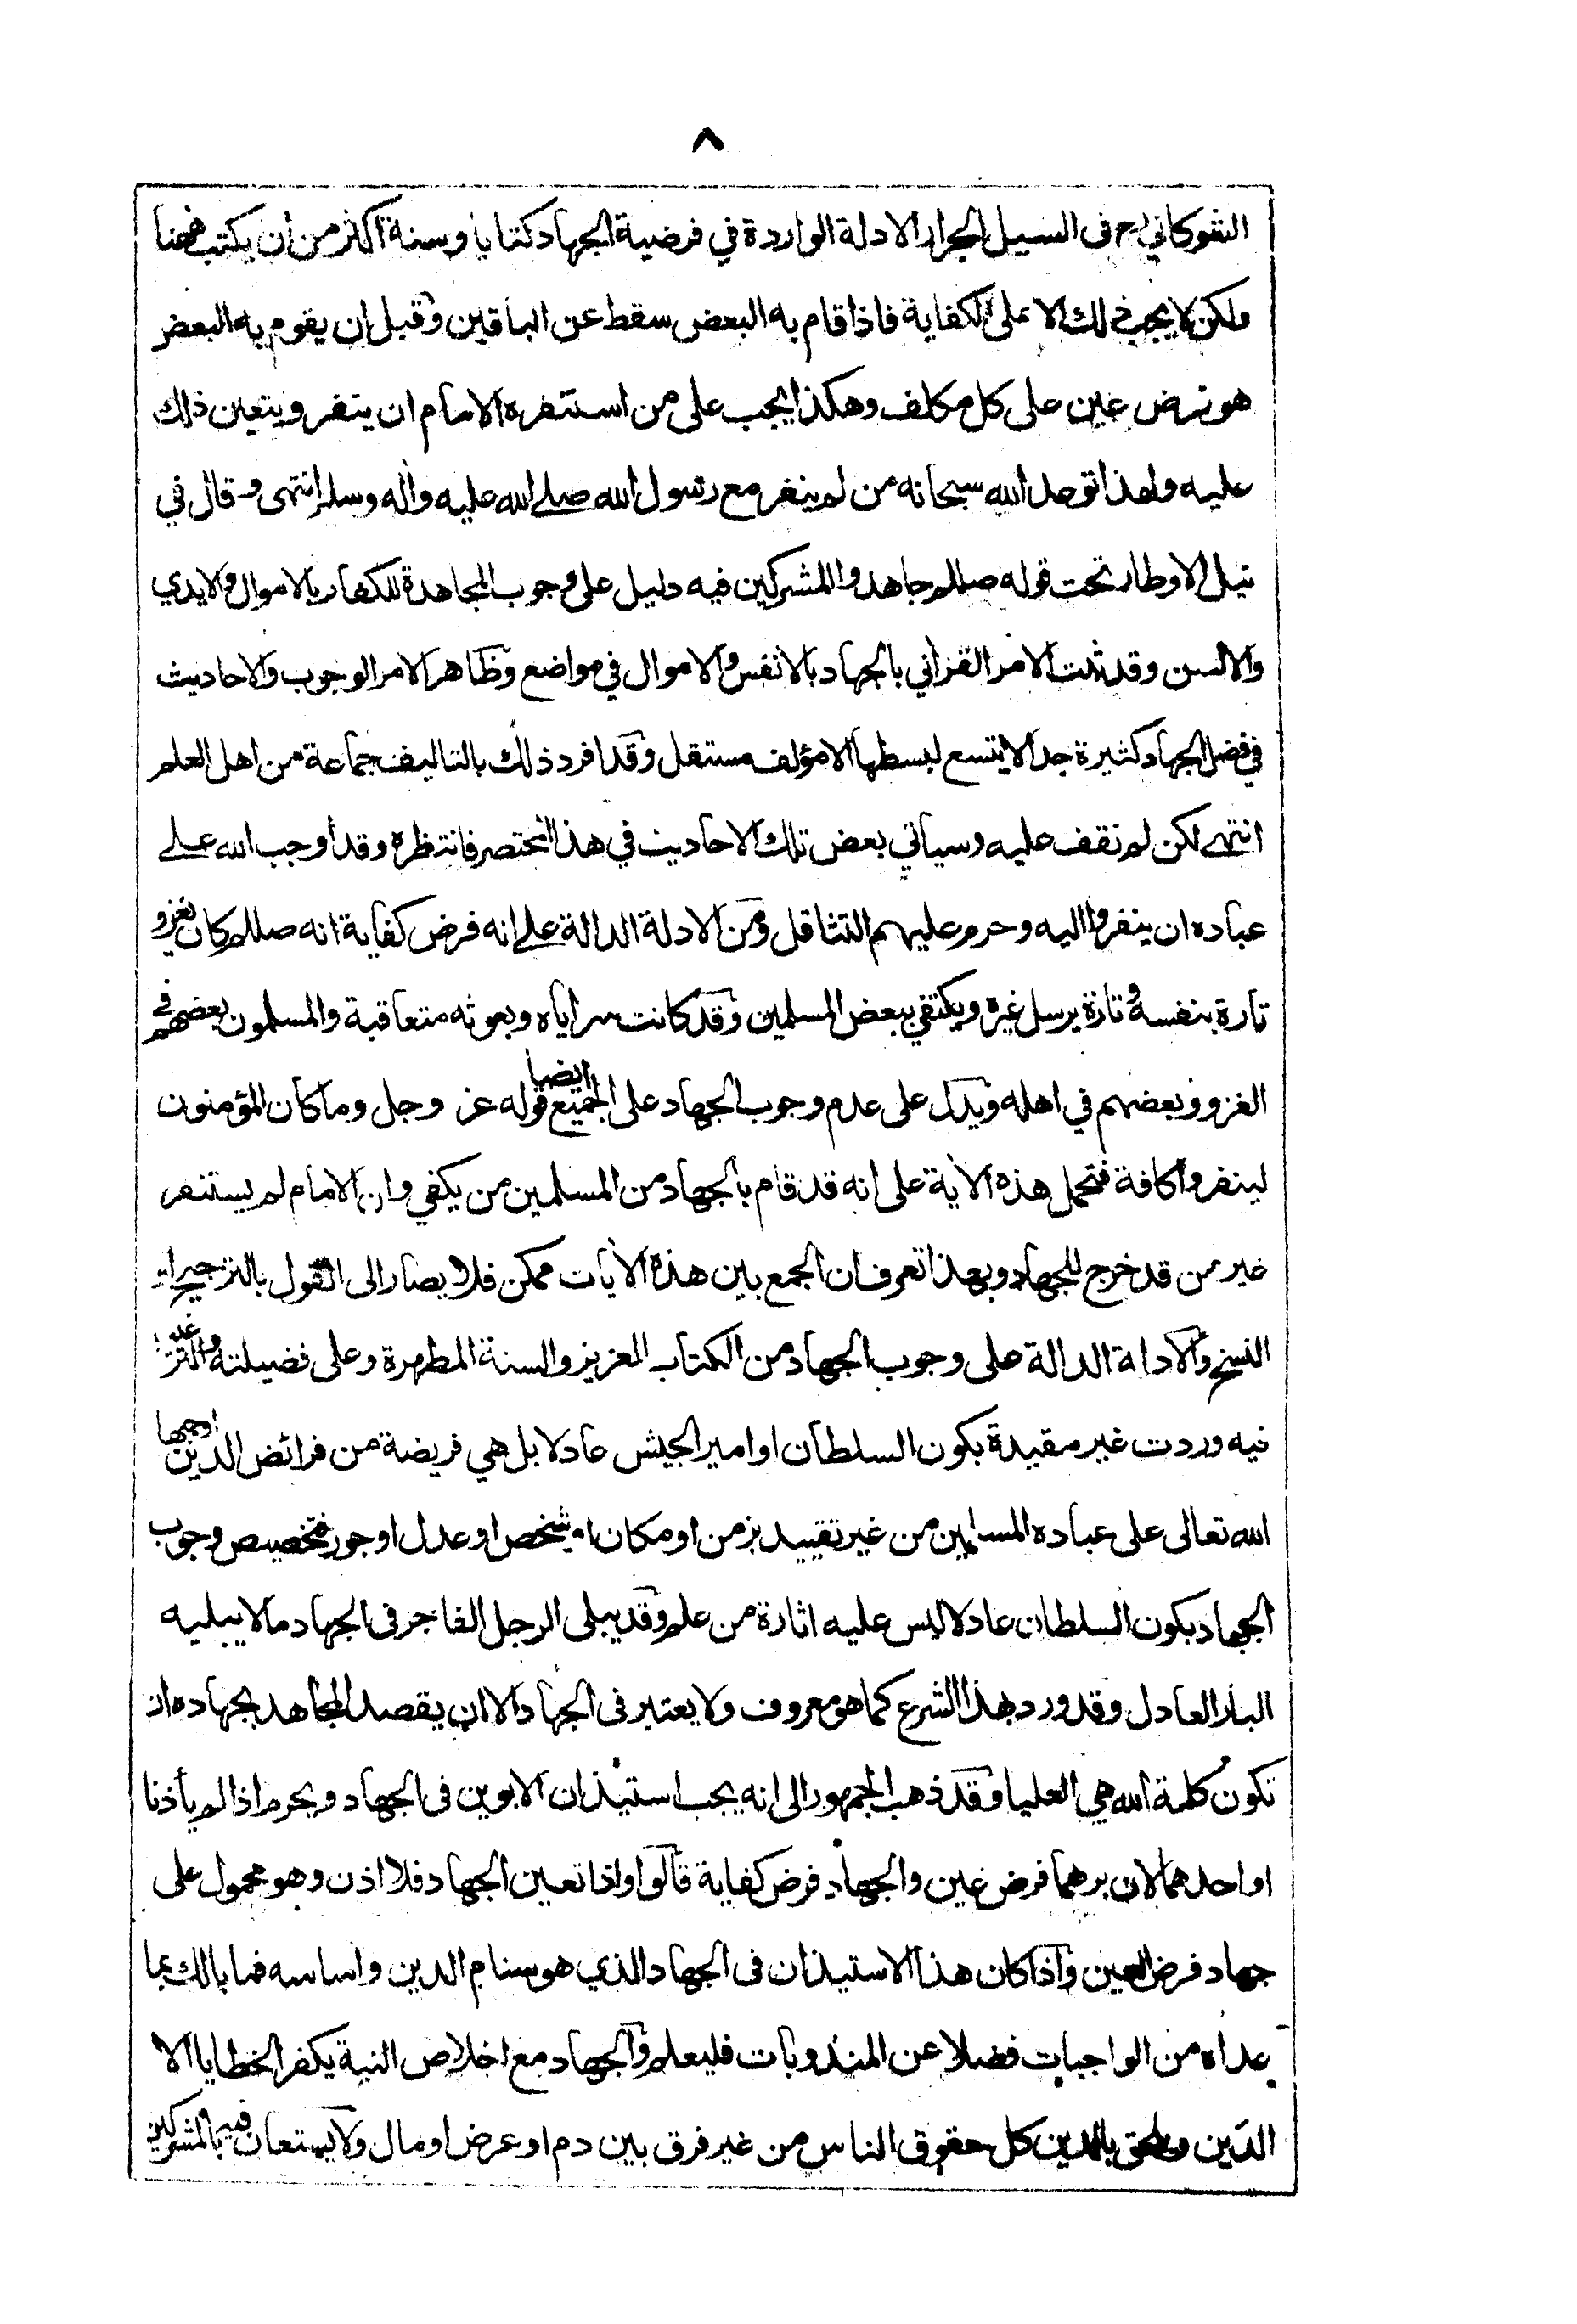 ٨
الشوكاني رح في السيل الجرار الادلة الواردة في فرضية الجهاد كتابا وسنة اكثر من ان يكتب ههنا
ولكن لا يجب ذلك الا على الكفاية فاذا قام به البعض سقط عن الباقين وقبل ان يقوم به البعض
هو فرض عين على كل مكلف وهكذا يجب على من استنفره الامام ان ينفر ويتعين ذلك
عليه ولهذا توعد الله سبحانه من لم ينفر مع رسول الله صلى الله عليه واله وسلم انتهى وقال في
نيل الاوطار تحت قوله صللم جاهدوا المشركين فيه دليل على وجوب المجاهدة للكفار بالاموال والايدي
والالسن وقد ثبت الامر القرآني بالجهاد بالانفس والاموال في مواضع وظاهر الامر الوجوب والاحاديث
في فضل الجهاد كثيرة جدا لا يتسع لبسطها الا مؤلف مستقل وقد افرد ذلك بالتاليف جماعة من اهل العلم
انتهى لكن لم نقف عليه وسياتي بعض تلك الاحاديث في هذا المختصر فانتظره وقد اوجب الله على
عباده ان ينفروا اليه وحرم عليهم التثاقل ومن الادلة الدالة على انه فرض كفاية انه صللم كان يغزو
تارة بنفسه وتارة يرسل غيره ويكتفي ببعض المسلمين وقد كانت سراياه وبعوثه متعاقبة والمسلمون بعضهم في
الغزو وبعضهم في اهله ويدل على عدم وجوب الجهاد على الجميع ايضا قوله عز وجل وما كان المؤمنون
لينفروا كافة فتحمل هذه الاية على انه قد قام بالجهاد من المسلمين من يكفي وان الامام لم يستنفر
غير من قد خرج للجهاد وبهذا تعرف ان الجمع بين هذه الآيات ممكن فلا يصار الى القول بالترجيح او
النسخ والادلة الدالة على وجوب الجهاد من الكتاب العزيز والسنة المطهرة وعلى فضيلته والترغيب
فيه وردت غير مقيدة بكون السلطان او امير الجيش عادلا بل هي فريضة من فرائض الدين اوجبها
الله تعالى على عباده المسلمين من غير تقييد بزمن او مكان او شخص او عدل او جور فتخصيص وجوب
الجهاد بكون السلطان عادلا ليس عليه اثارة من علم وقد يبلى الرجل الفاجر في الجهاد ما لا يبليه
البار العادل وقد ورد بهذا الشرع كما هو معروف ولا يعتبر في الجهاد الا ان يقصد المجاهد بجهاده ان
تكون كلمة الله هي العليا وقد ذهب الجمهور الى انه يجب استيذان الابوين في الجهاد ويحرم اذا لم يأذنا
او احدهما لان برهما فرض عين والجهاد فرض كفاية قالوا واذا تعين الجهاد فلا اذن وهو محمول على
جهاد فرض العين واذا كان هذا الاستيذان في الجهاد الذي هو سنام الدين واساسه فما بالك بما
عداه من الواجبات فضلا عن المندوبات فليعلم والجهاد مع اخلاص النية يكفر الخطايا الا
الدين ويلحق بالدين كل حقوق الناس من غير فرق بين دم او عرض او مال ولا يستعان فيه بالمشركين